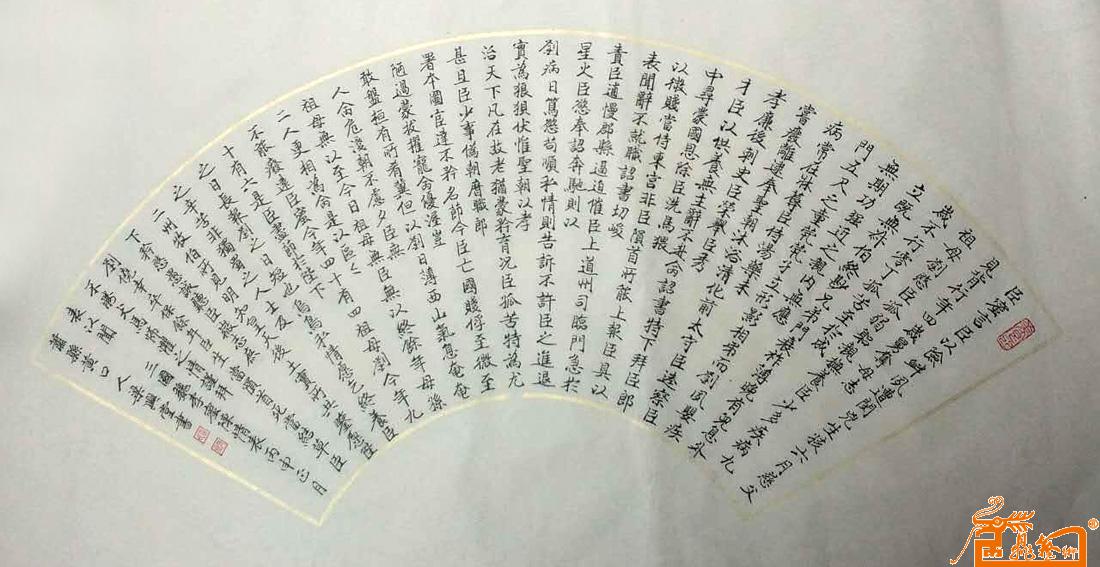 臣密言臣以險釁夙遭閔凶生孩六月慈父
見背行年四歲舅奪母志
祖母劉愍臣孤弱躬親撫養臣少多疾病九
歲不行零丁孤苦至於成
立既無
無期功強近之親內無應
門五尺之
病常在牀蓐臣侍湯藥未
嘗廢離逮奉聖朝沐浴清化前太守臣逵察臣
孝廉後刺史臣榮舉臣秀
才臣以供養無主辭不赴命詔書特下拜臣郎
中尋蒙國恩除臣洗馬猥
以微賤當侍東宮非臣隕首所能上報臣具以
表聞辭不就職詔書切峻
責臣逋慢郡縣逼迫催臣上道州司臨門急於
星火臣慾奉詔奔馳則以
劉病日篤慾苟順私情則告訴不許臣之進退
實為狼狽伏惟聖朝以孝
治天下凡在故老猶蒙矜育況臣孤苦特為尤
甚且臣少事偽朝歷職郎
署本圖宦達不矜名節今臣亡國賤俘至微至
陋過蒙拔擢寵命優渥豈
敢盤桓有所希冀但以劉日薄西山氣息奄奄
人命危淺朝不慮夕臣無
祖母無以至今日祖母無臣無以終餘年母孫
二人更相為命是以區々
不能廢遠臣密今年四十有四祖母劉今年九
十有六是臣盡節於陛下
之日長報劉之日短也烏鳥私情願乞終養臣
之辛苦非獨蜀之人士及
二州牧伯所見明知皇天后土實所共鑒願陛
下矜愍愚誠聽臣微志庶
劉僥幸卒保餘年
不勝犬馬怖懼之情謹拜
表以聞 三國蜀李密陳情表丙申正月
蕭縣黃口人